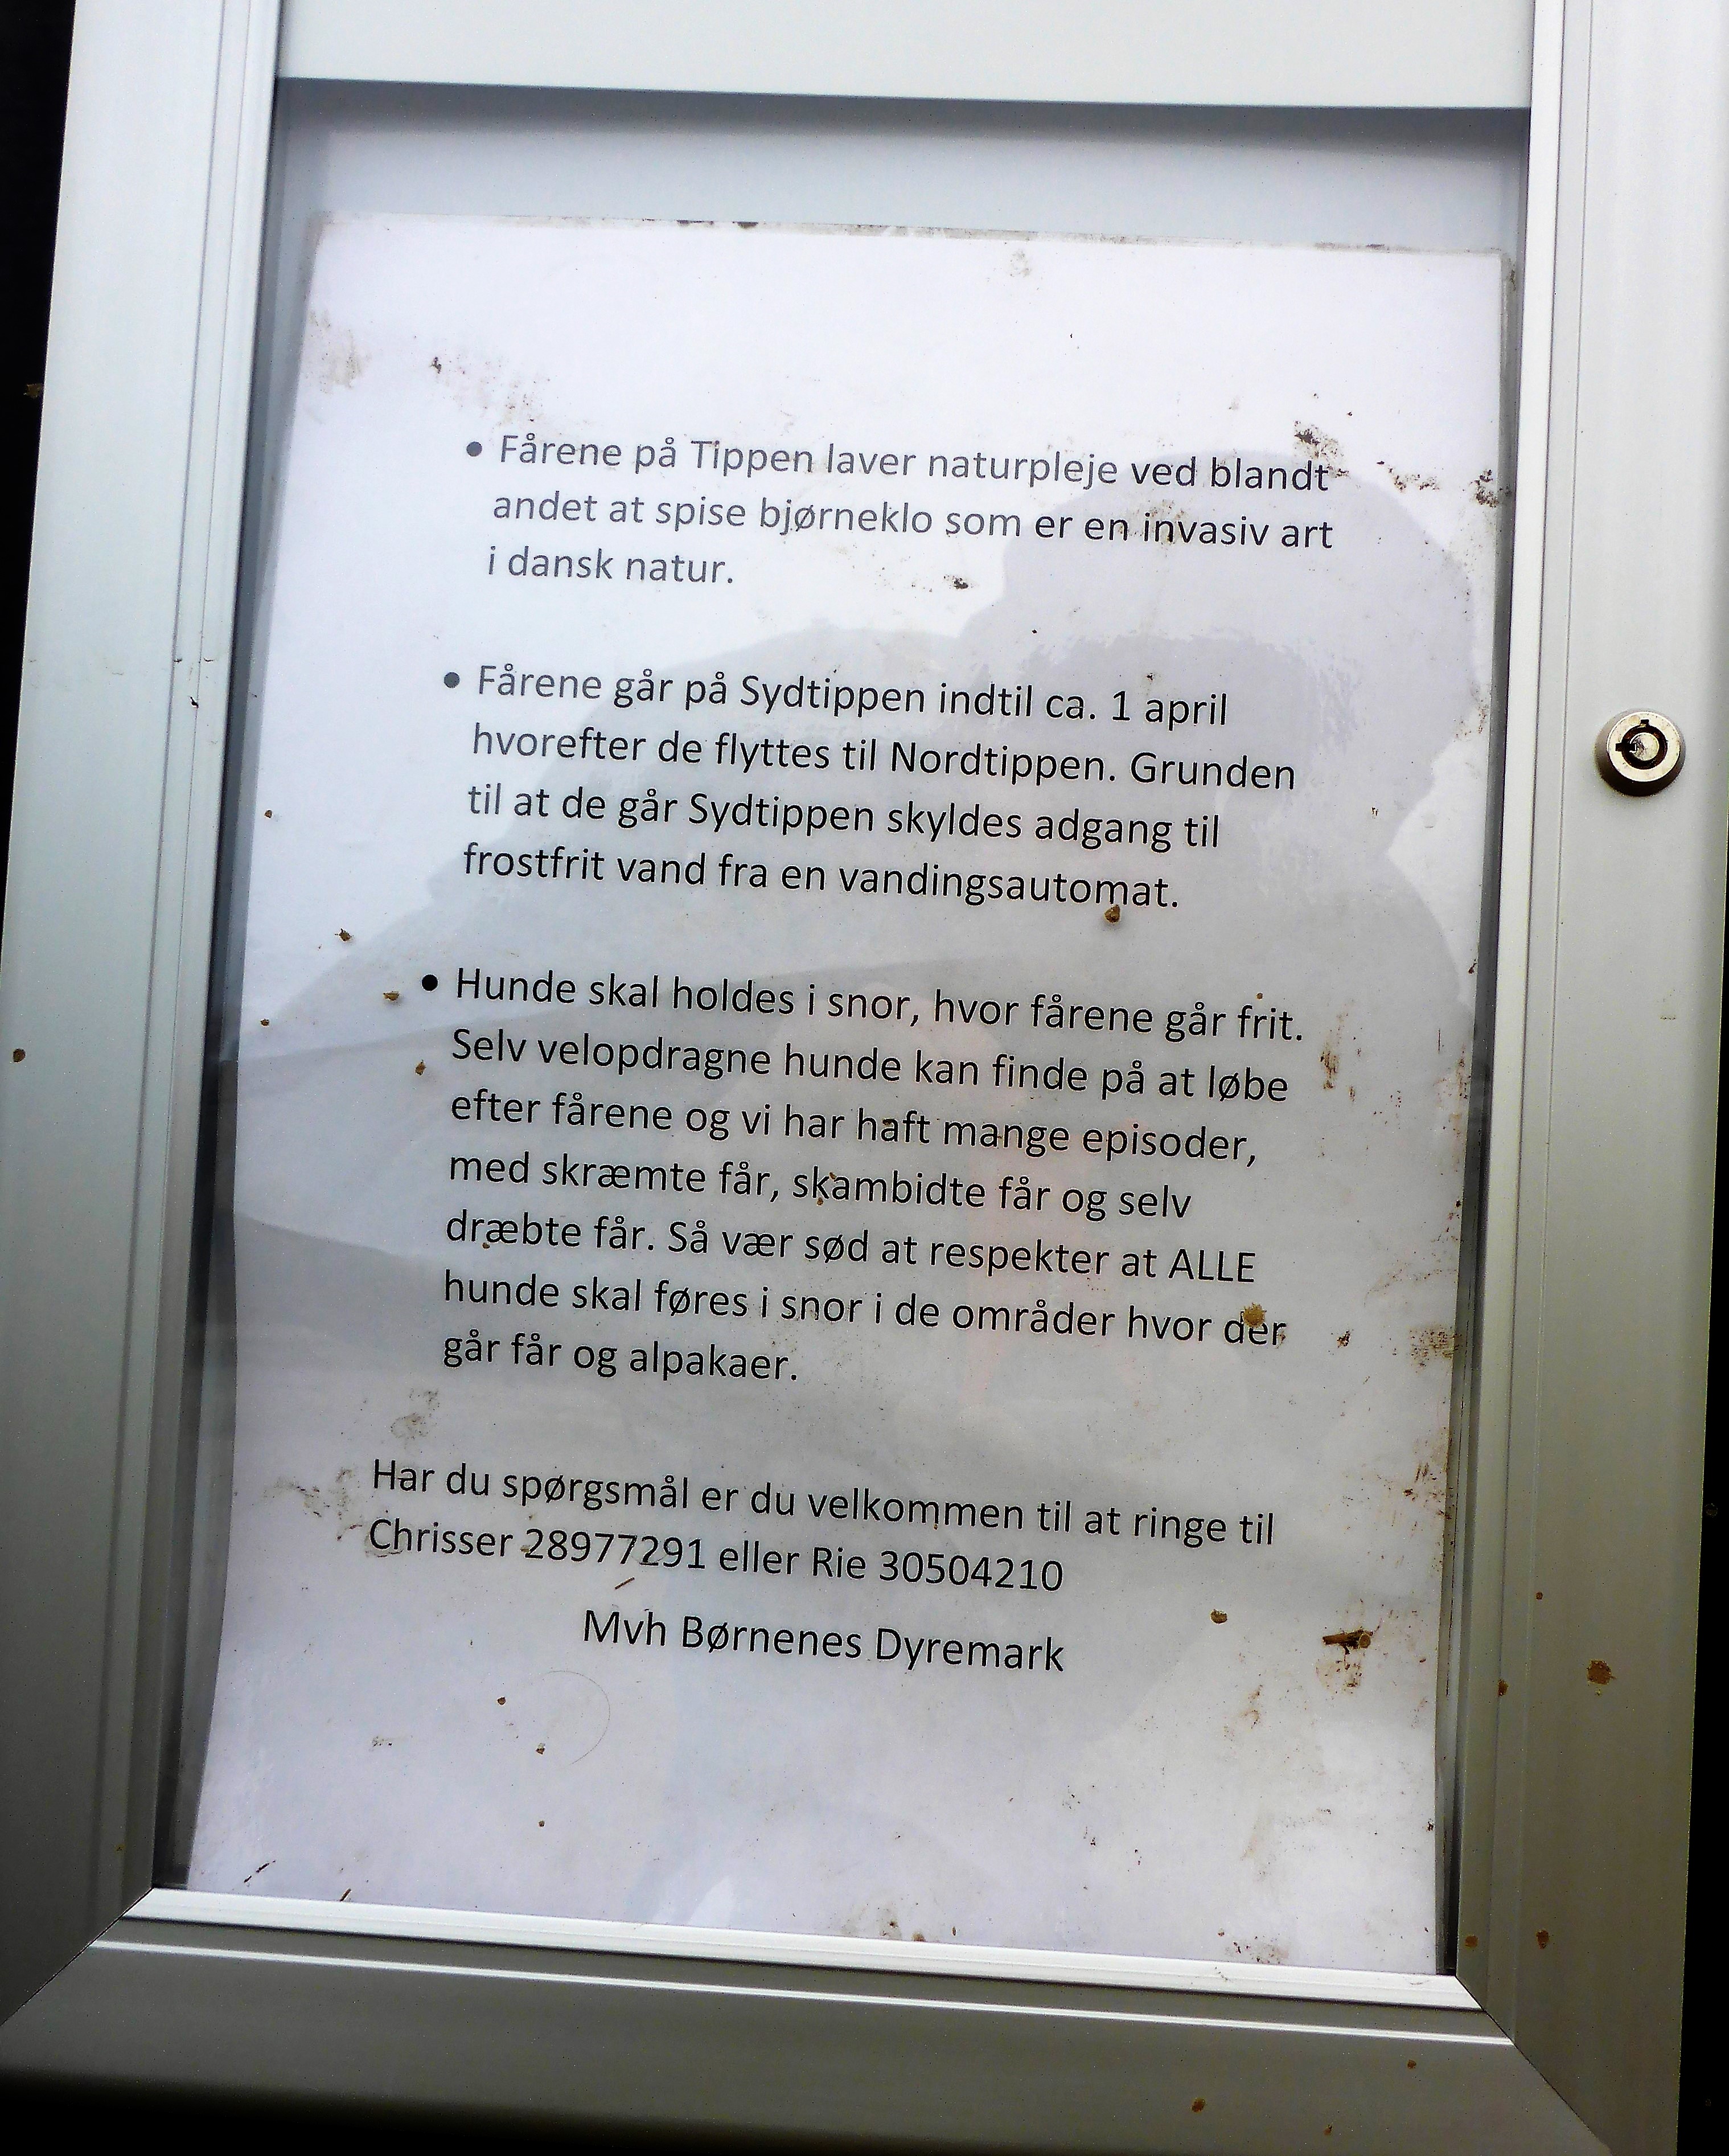 • Fårene på Tippen laver naturpleje ved blandt
andet at spise bjørneklo som er en invasiv art
i dansk natur.
• Fårene går på Sydtippen indtil ca. 1 april
hvorefter de flyttes til Nordtippen. Grunden
til at de går Sydtippen skyldes adgang til
frostfrit vand fra en vandingsautomat.
• Hunde skal holdes i snor, hvor fårene går frit.
Selv velopdragne hunde kan finde på at løbe
efter fårene og vi har haft mange episoder,
med skræmte får, skambidte får og selv
dræbte får. Så vær sød at respekter at ALLE
hunde skal føres i snor i de områder hvor der
går får og alpakaer.
Har du spørgsmål er du velkommen til at ringe til
Chrisser 28977291 eller Rie 30504210
Mvh Børnenes Dyremark